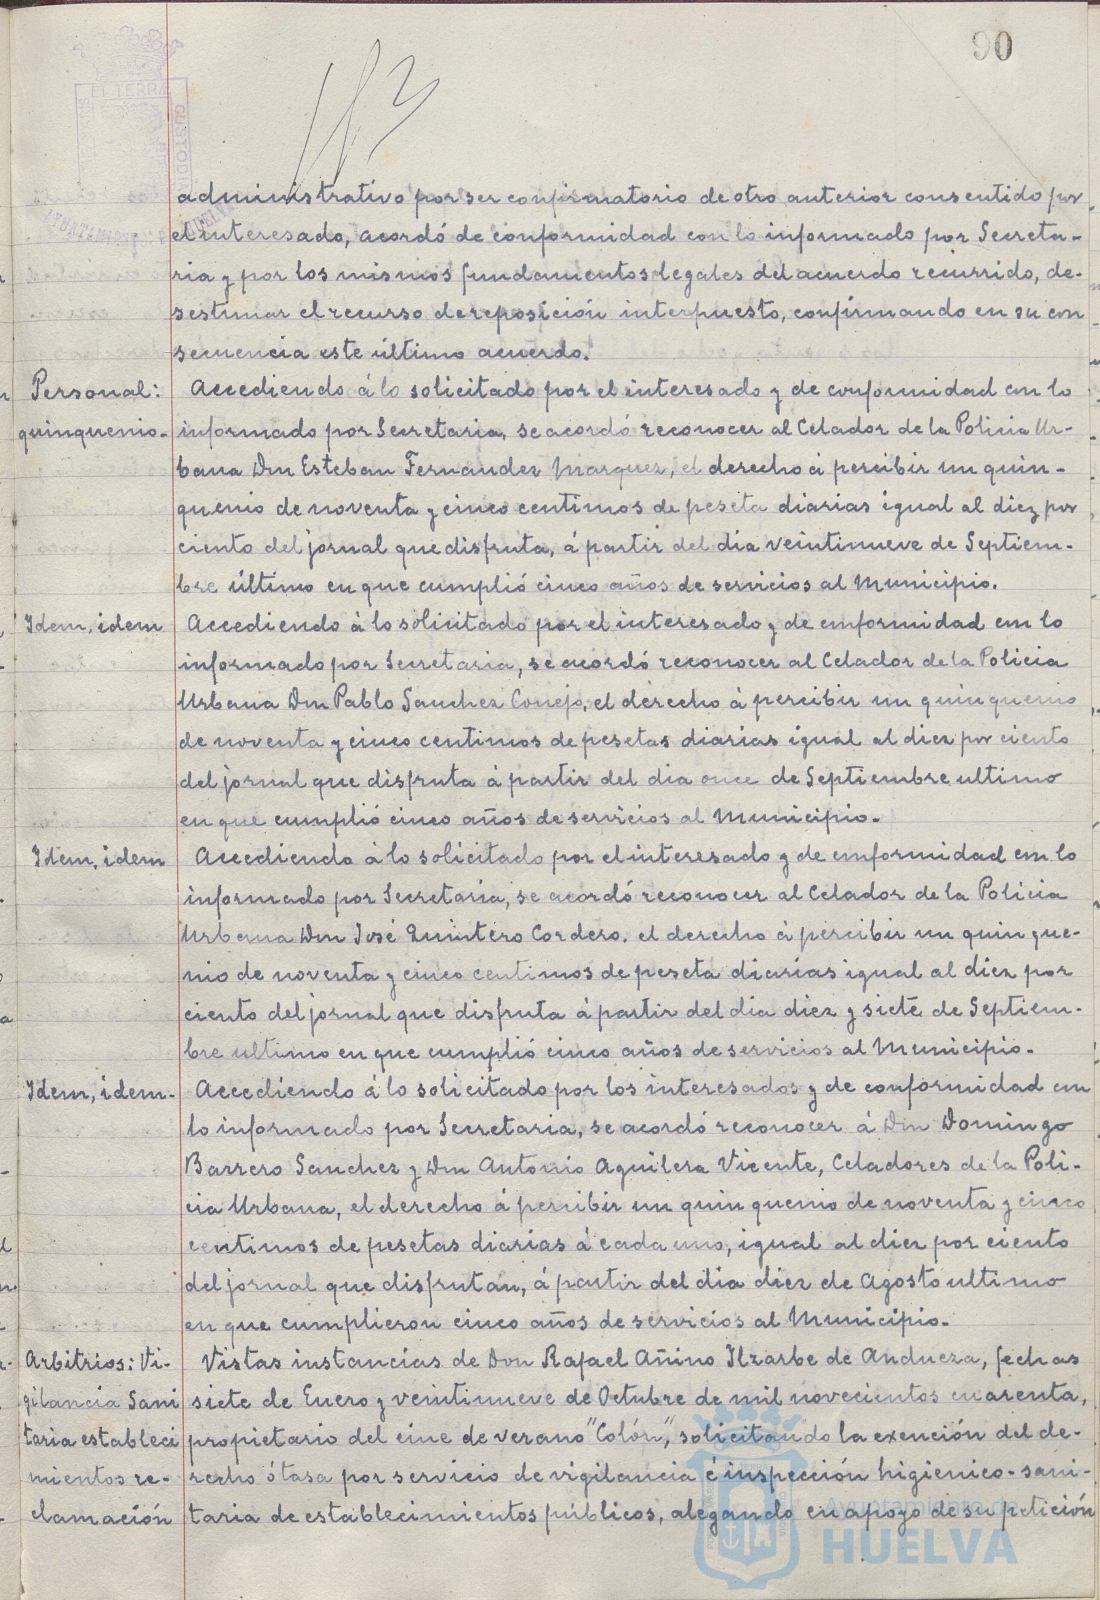 90
administrativo por ser confirmatorio de otro anterior consentido por
el interesado, acordó de conformidad con lo informado por Secreta-
ria y por los mismos fundamentos legales del acuerdo recurrido, de-
sestimar el recurso de reposición interpuesto, confirmando en su con
secuencia este último acuerdo.
Personal: Accediendo á lo solicitado por el interesado y de conformidad con lo
quinquenio. informado por Secretaria, se acordó reconocer al Celador de la Policia Ur-
bana Don Esteban Fernandez Marquez, el derecho á percibir un quin-
quenio de noventa y cinco centimos de peseta diarias igual al diez por
ciento del jornal que disfruta, á partir del dia veintinueve de Septiem-
bre último en que cumplió cinco años de servicios al Municipio.
Idem, idem Accediendo á lo solicitado por el interesado y de conformidad con lo
informado por Secretaria, se acordó reconocer al Celador de la Policia
Urbana Don Pablo Sanchez Conejo, el derecho á percibir un quinquenio
de noventa y cinco centimos de pesetas diarias igual al diez por ciento
del jornal que disfruta á partir del dia once de Septiembre ultimo
en que cumplió cinco años de servicios al Municipio.
Idem, idem Accediendo á lo solicitado por el interesado y de conformidad con lo
informado por Secretaria, se acordó reconocer al Celador de la Policia
Urbana Don José Quintero Cordero, el derecho á percibir un quinque-
nio de noventa y cinco centimos de peseta diarias igual al diez por
ciento del jornal que disfruta á partir del dia diez y siete de Septiem-
bre ultimo en que cumplió cinco años de servicios al Municipio.
Idem, idem. Accediendo á lo solicitado por los interesados y de conformidad con
lo informado por Secretaria, se acordó reconocer á Don Domingo
Barrero Sanchez y Don Antonio Aguilera Vicente, Celadores de la Poli-
cia Urbana, el derecho á percibir un quinquenio de noventa y cinco
centimos de pesetas diarias á cada uno, igual al diez por ciento
del jornal que disfrutan, á partir del dia diez de Agosto ultimo
en que cumplieron cinco años de servicios al Municipio.
Arbitrios: Vi- Vistas instancias de Don Rafael Añino Ilzarbe de Andueza, fechas
gilancia Sani siete de Enero y veintinueve de Octubre de mil novecientos cuarenta,
taria estableci propietario del cine de verano "Colón", solicitando la exención del de-
mientos re- recho ó tasa por servicio de vigilancia é inspección higienico-sani-
clamación taria de establecimientos públicos, alegando en apoyo de su petición
Ayuntamiento de
HUELVA